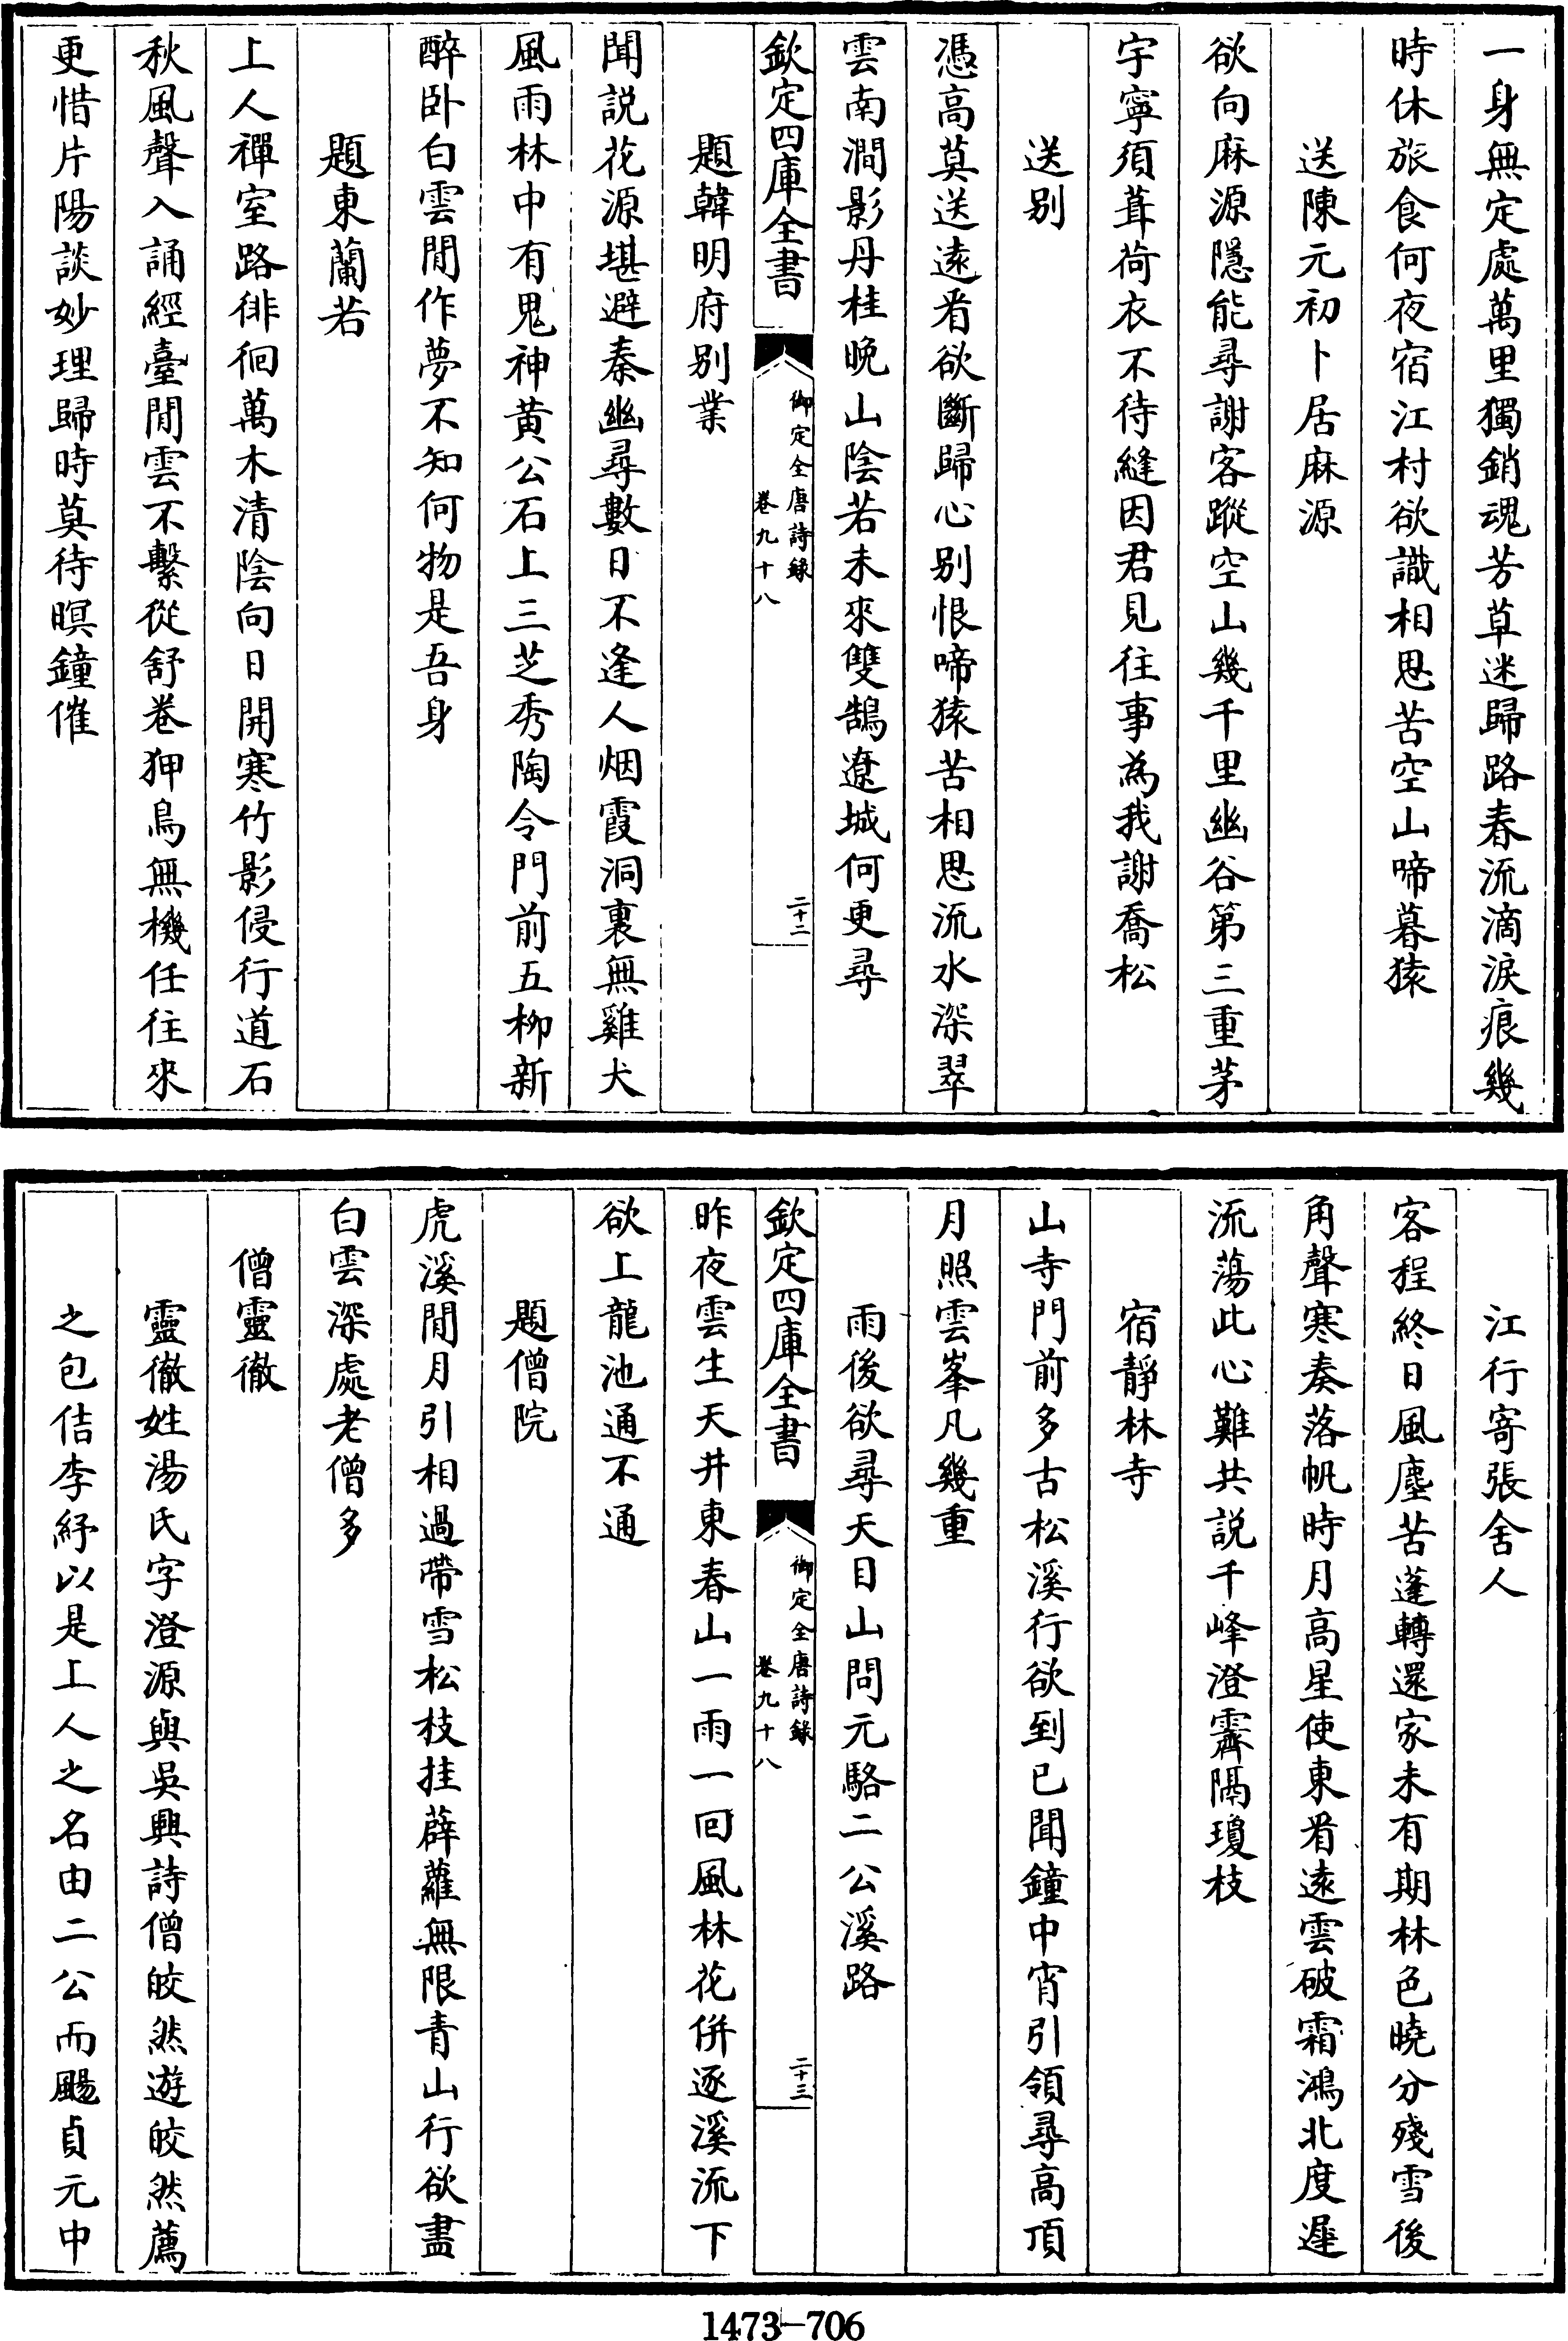 一身無定處萬里獨銷魂芳草迷歸路春流滴淚痕幾
時休旅食何夜宿江村欲識相思苦空山啼暮猿
送陳元初卜居麻源
欲向麻源隱能尋謝客蹤空山幾千里幽谷第三重茅
宇寧須葺荷衣不待縫因君見往事為我謝喬松
送别
憑高莫送遠看欲斷歸心别恨啼猿苦相思流水深翠
雲南澗影丹桂晚山陰若未來雙鵠遼城何更尋
欽定四庫全書
御定全唐詩錄
卷九十八
二十二
題韓明府别業
聞説花源堪避秦幽尋數日不逢人烟霞洞裏無雞犬
風雨林中有鬼神黄公石上三芝秀陶令門前五栁新
醉卧白雲閒作夢不知何物是吾身
題東蘭若
上人禪室路徘徊萬木清陰向日開寒竹影侵行道石
秋風聲入誦經臺閒雲不繫從舒卷狎鳥無機任往來
更惜片陽談妙理歸時莫待暝鐘催
江行寄張舍人
客程終日風塵苦蓬轉還家未有期林色曉分殘雪後
角聲寒奏落帆時月高星使東看遠雲破霜鴻北度遲
流蕩此心難共説千峰澄霽隔瓊枝
宿靜林寺
山寺門前多古松溪行欲到已聞鐘中宵引領尋高頂
月照雲峯凡幾重
雨後欲尋天目山問元駱二公溪路
欽定四庫全書
御定全唐詩錄
卷九十八
二十三
昨夜雲生天井東春山一雨一回風林花併逐溪流下
欲上龍池通不通
題僧院
虎溪閒月引相過帶雪松枝挂薜蘿無限青山行欲盡
白雲深處老僧多
僧靈徹
靈徹姓湯氏字澄源與吳興詩僧皎然遊皎然薦
之包佶李紓以是上人之名由二公而颺貞元中
1473—706